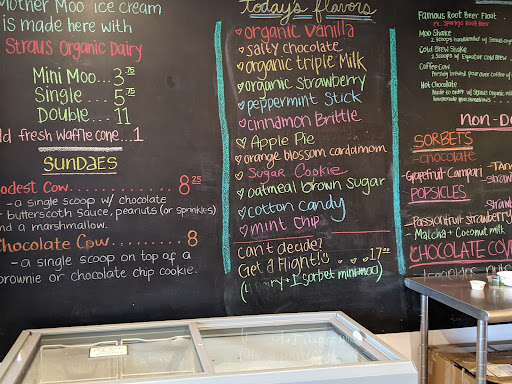 Mother Moo ice cream
is made here with
Straus Organic Dairy
Mini Moo... 3.75
Single.... 5.75
Double.... 11
fresh waffle cone...1
SUNDAES
odest Cow.......... 8.25
- a single scoop w/ chocolate
r butterscotch sauce, peanuts (or sprinkles)
nd a marshmallow.
Chocolate Cow......... 8
- a single scoop on top of a
brownie or chocolate chip cookie.
Today's flavors
organic vanilla
salty chocolate
organic triple Milk
organic strawberry
peppermint stick
cinnamon Brittle
Apple Pie
orange blossom cardamom
Sugar Cookie
oatmeal brown sugar
cotton candy
mint chip
can't decide?
Get a Flight! ... 17.00
dairy + 1 sorbet mini moo)
Famous Root Beer Float
ft. Sparky's Root Beer
Moo Shake
2 scoops handblended w/ Straus
Cold Brew Shake
2 scoops w/ Equator cold Brew
Coffee Cow
Freshly brewed pour over coffee
Hot Chocolate
made to order w/ Straus organic
non-D
SORBETS
-chocolate
-Grapefruit-Campari
-Tan
-Straw
POPSICLES
-Passionfruit-strawberry
-Matcha + Coconut milk
CHOCOLATE COV